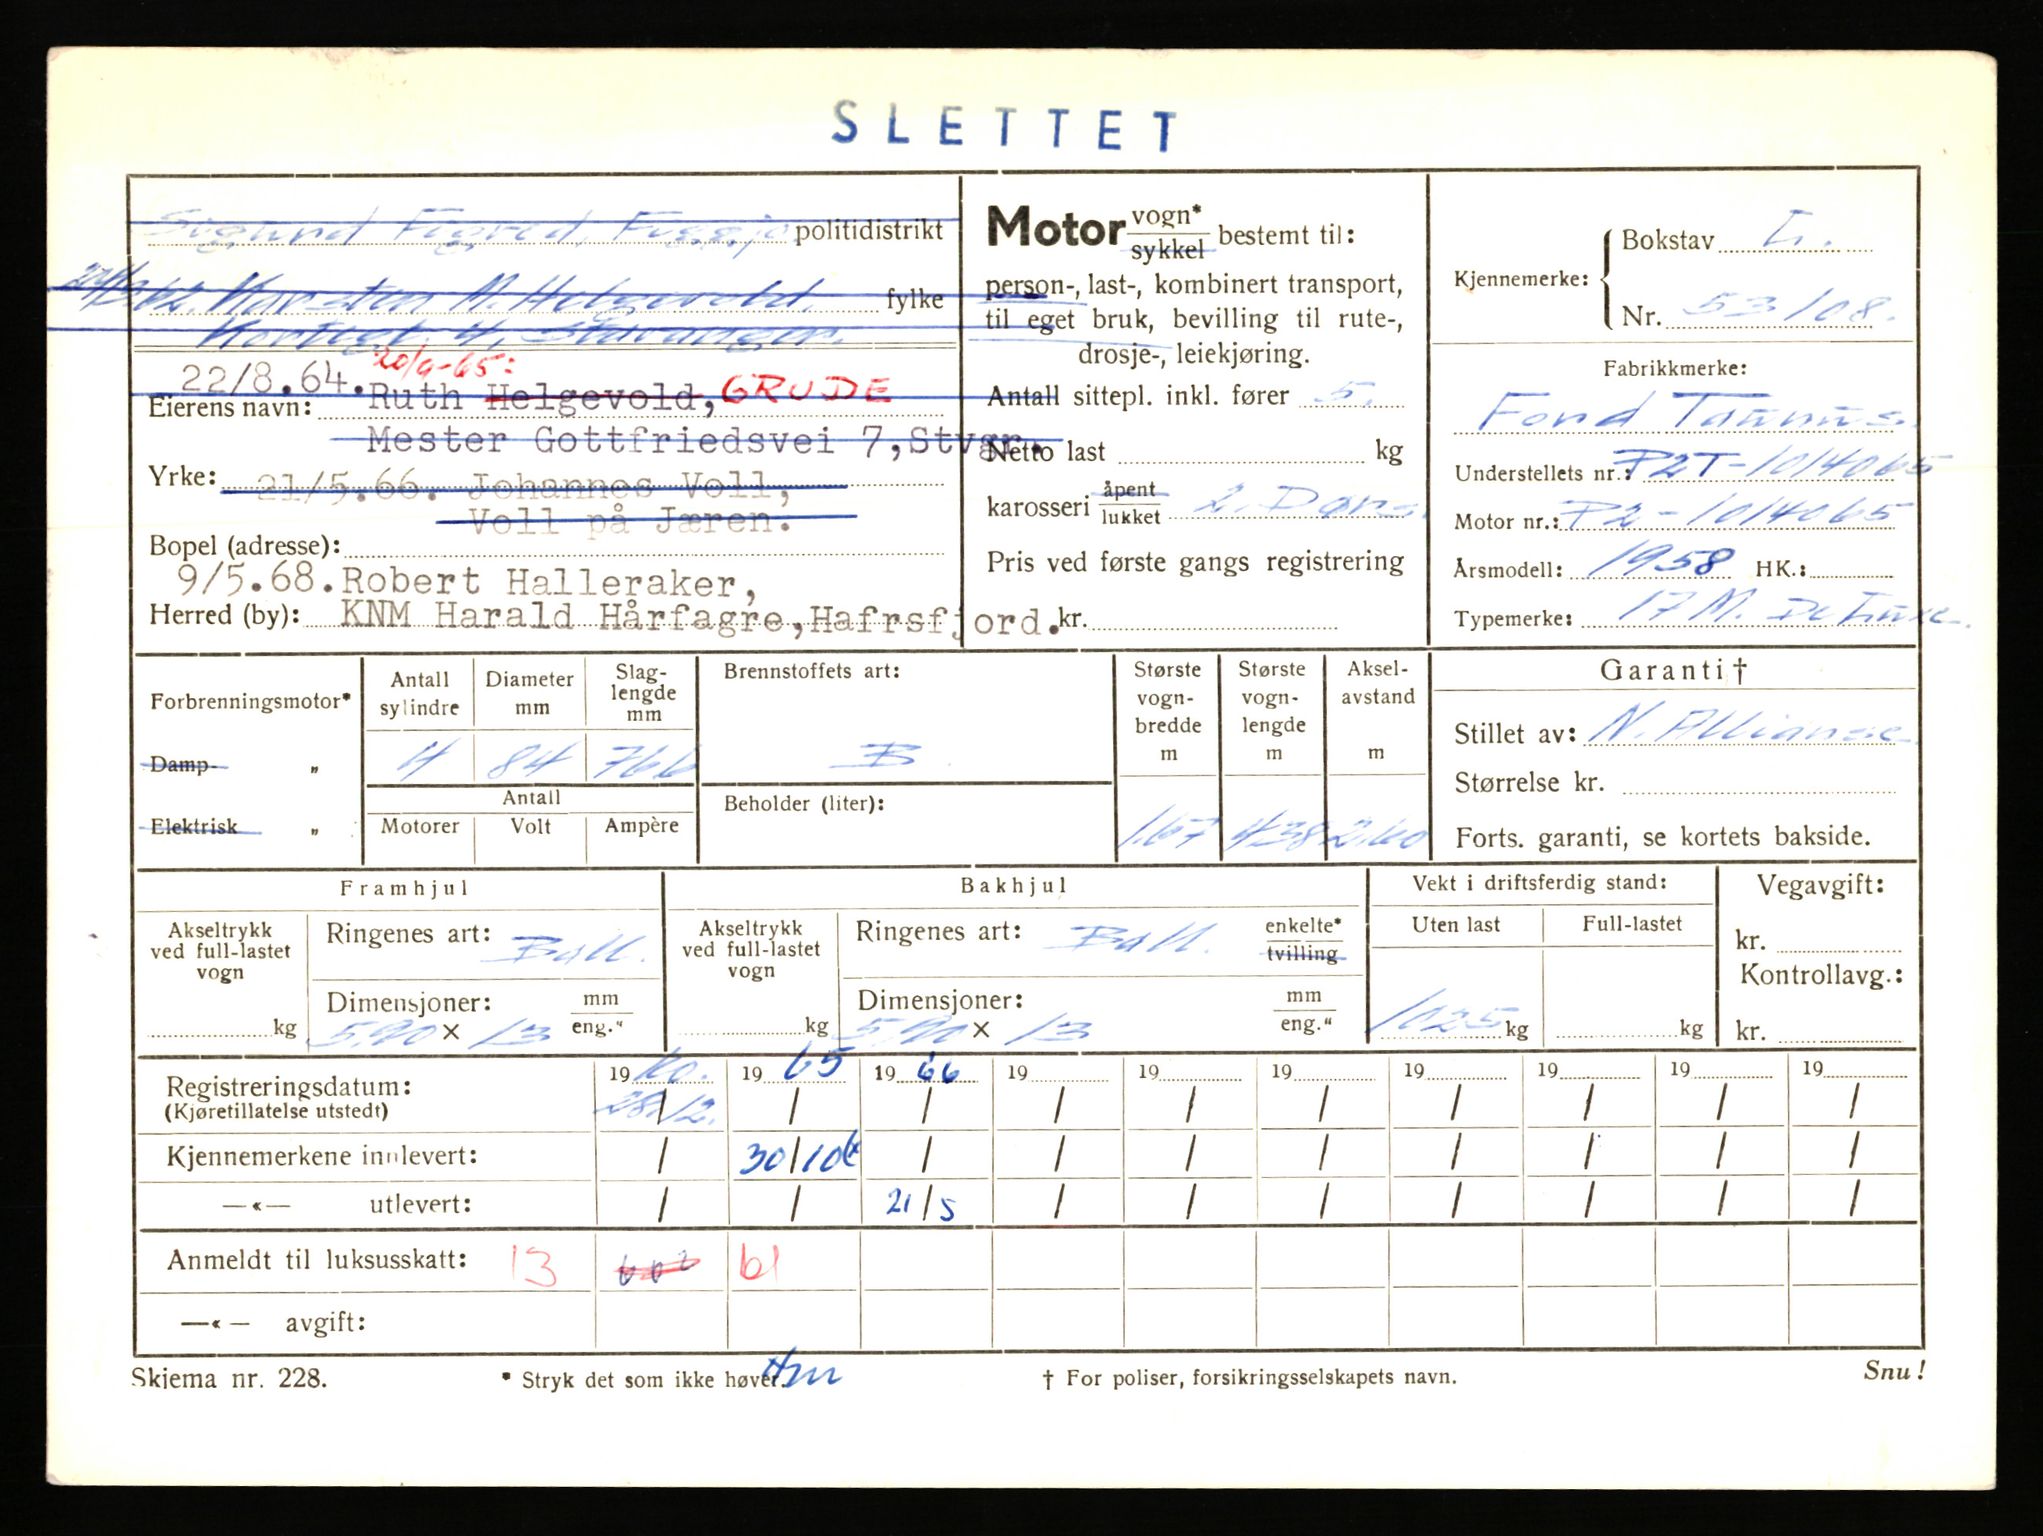 SLETTET
politidistrikt
Karsten M. Helgevold
fylke
4, Stavanger.
20/9-65:
22/8.64. Ruth Helgevold, GRUDE
Eierens navn:
Mester Gottfriedsvei 7, Stvgr.
Yrke: 21/5.66. Johannes Voll,
Voll på Jæren.
Bopel (adresse):
9/5.68. Robert Halleraker,
Herred (by): KNM Harald Hårfagre, Hafrsfjord.
Motor vogn*
sykkel bestemt til:
person-, last-, kombinert transport,
til eget bruk, bevilling til rute-,
drosje-, leiekjøring.
Antall sittepl. inkl. fører 5.
Netto last kg
karosseri åpent
lukket 2. Dørs.
Pris ved første gangs registrering
kr.
Kjennemerke: Bokstav L.
Nr. 53108.
Fabrikkmerke:
Ford Taunus.
Understellets nr.: P2T-1014065
Motor nr.: P2-1014065
Årsmodell: 1958 HK.:
Typemerke: 17 M. De Luxe.
Forbrenningsmotor*
Damp- „
Elektrisk „
Antall
sylindre
4
Diameter
mm
84
Slag-
lengde
mm
76,6
Antall
Motorer Volt Ampère
Brennstoffets art:
B
Beholder (liter):
Største
vogn-
bredde
m
1.67
Største
vogn-
lengde
m
4.38
Aksel-
avstand
m
2.60
Garanti†
Stillet av: N. Alliance
Størrelse kr.
Forts. garanti, se kortets bakside.
Framhjul
Akseltrykk
ved full-lastet
vogn
kg
Ringenes art: Ball.
Dimensjoner: mm
5.90 x 13 eng."
Bakhjul
Akseltrykk
ved full-lastet
vogn
kg
Ringenes art: Ball. enkelte*
tvilling
Dimensjoner: mm
5.90 x 13 eng."
Vekt i driftsferdig stand:
Uten last Full-lastet
1025 kg kg
Vegavgift:
kr.
Kontrollavg.:
kr.
Registreringsdatum: 1960. 1965 1966 19 19 19 19 19 19 19
(Kjøretillatelse utstedt) 28/12. / / / / / / / / /
Kjennemerkene innlevert: / 30/10 / / / / / / / /
—«— utlevert: / / 21/5 / / / / / / /
Anmeldt til luksusskatt: 13 61
—«— avgift:
Skjema nr. 228.
* Stryk det som ikke høver.
† For poliser, forsikringsselskapets navn.
Snu!